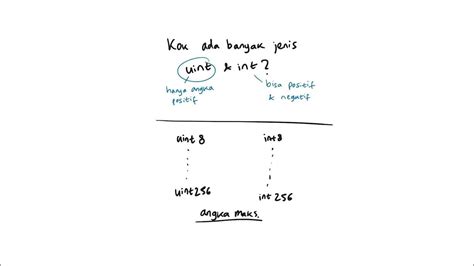 Kok ada banyak jenis
uint & int ?
hanya angka positif
bisa positif & negatif
uint 8
int 8
uint 256
int 256
angka maks.